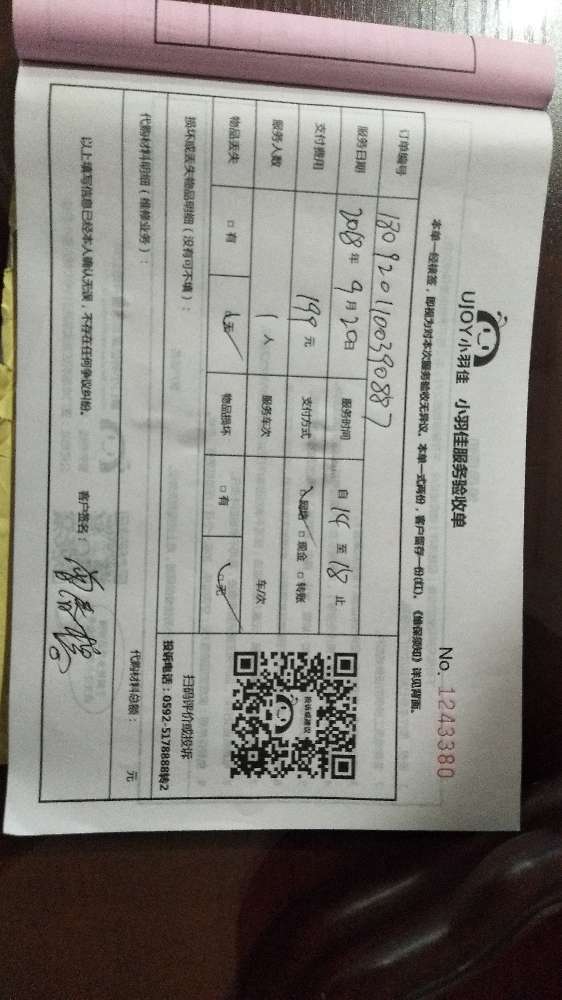 UJOY小羽佳 小羽佳服务验收单
No. 1243380
本单一经横签，即视为对本次服务验收无异议。本单一式两份，客户留存一份(红)。《维保须知》详见背面。
订单编号 1809201100390887
服务日期 2018年9月20日 服务时间 自 14 至 18 止
支付费用 199 元 支付方式 网络 □现金 □转账
服务人数 1 人 服务车次 车/次
物品丢失 □有 无 物品损坏 □有 □无
投诉或建议
扫码评价或投诉
投诉电话：0592-5178888转2
损坏或丢失物品明细（没有可不填）：
代购材料明细（维修业务）： 代购材料总额： 元
以上填写信息已经本人确认无误，不存在任何争议纠纷。 客户签名：